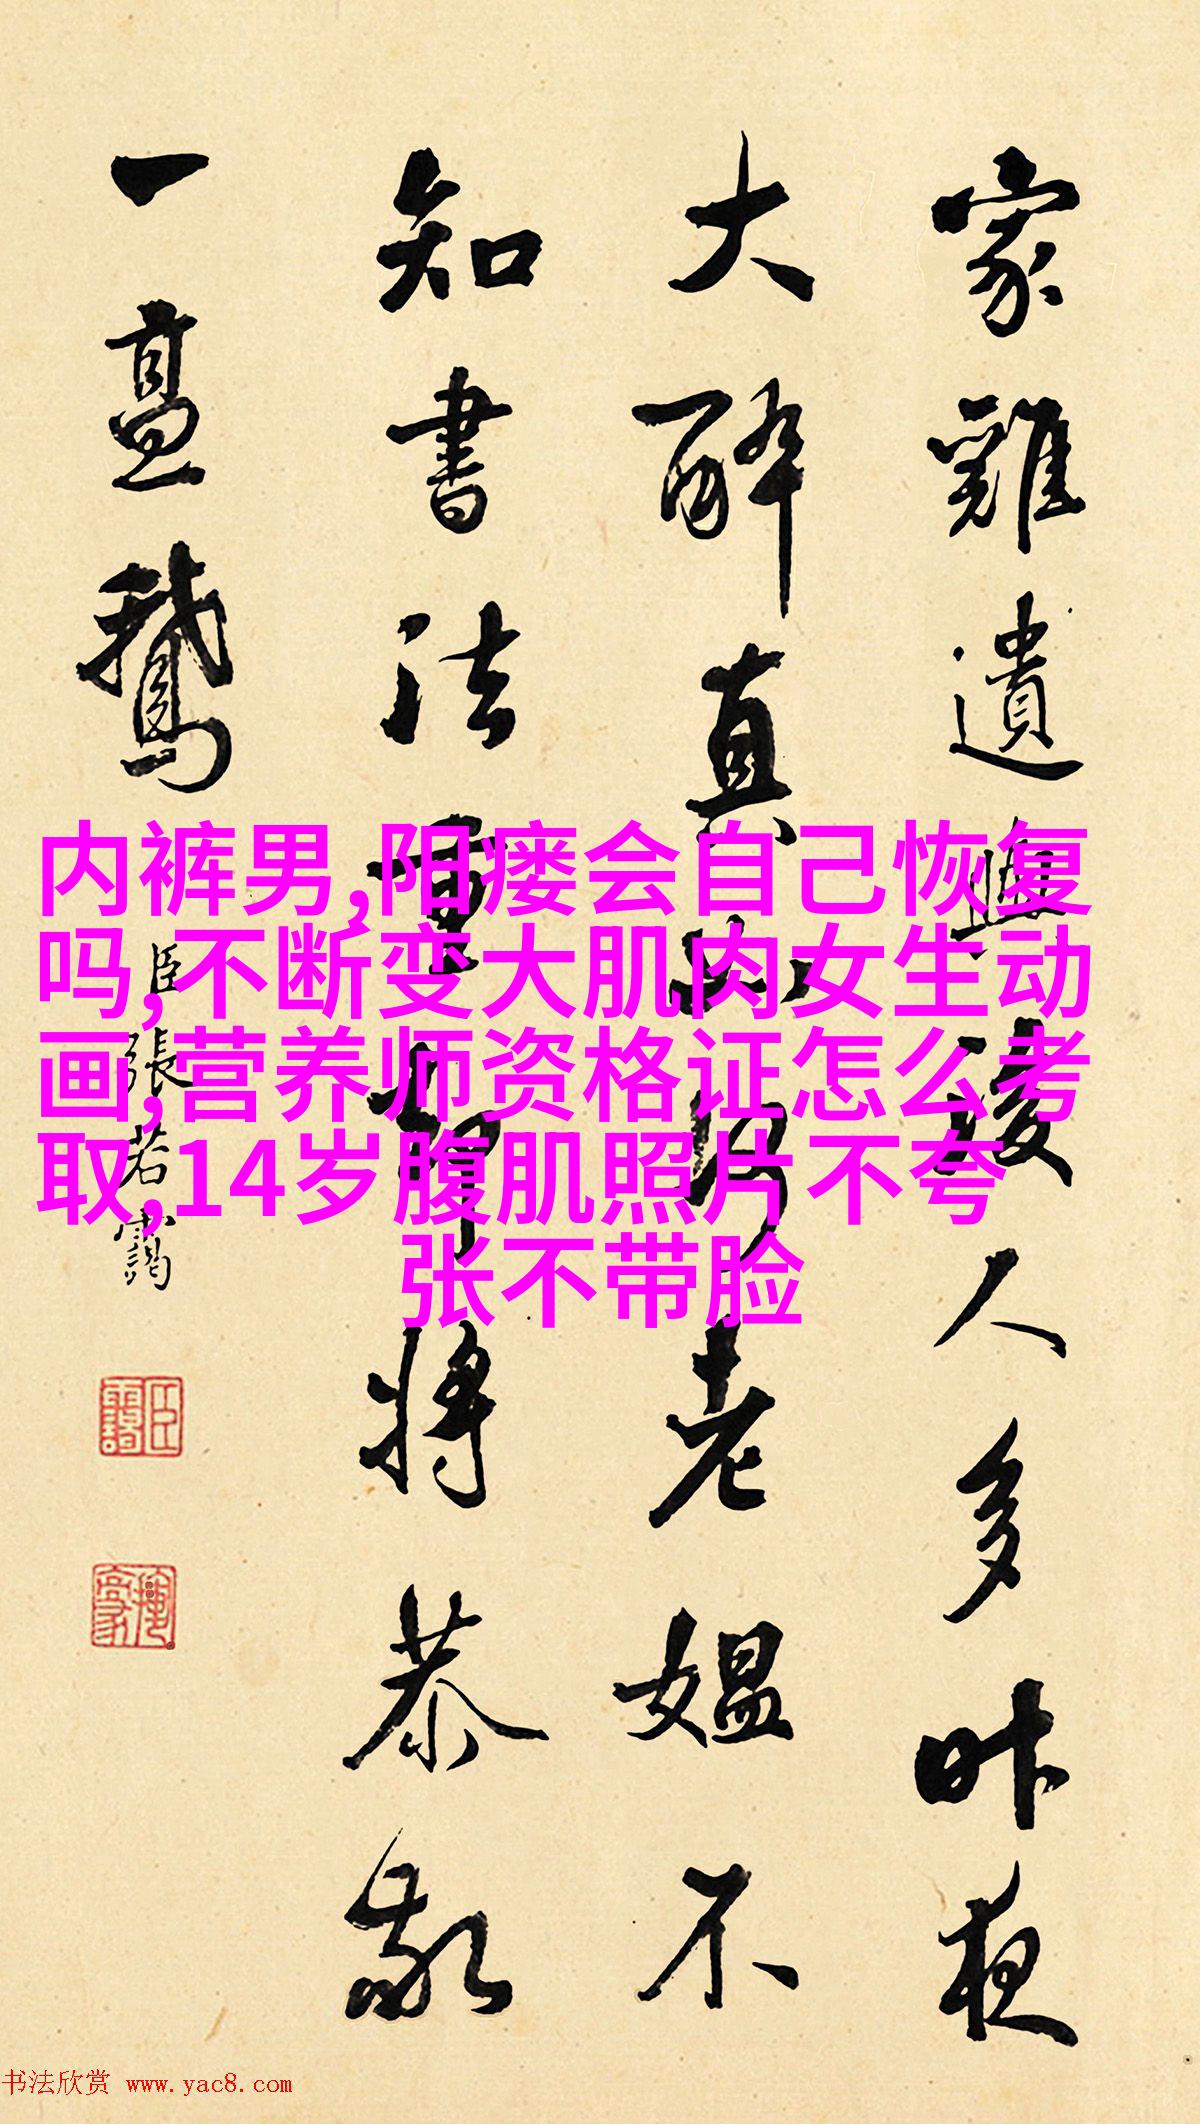 家雞遺人多昨夜
大醉真老媼不
知書法重却將恭敬
一鵝
臣張若靄
内裤男,阳瘘会自己恢复
吗,不断变大肌肉女生动
画,营养师资格证怎么考
取,14岁腹肌照片不夸
张不带脸
书法欣赏 www.yac8.com